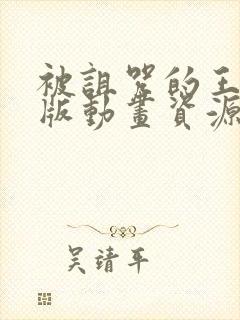 被詛咒的王
版動畫資源
吴靖平